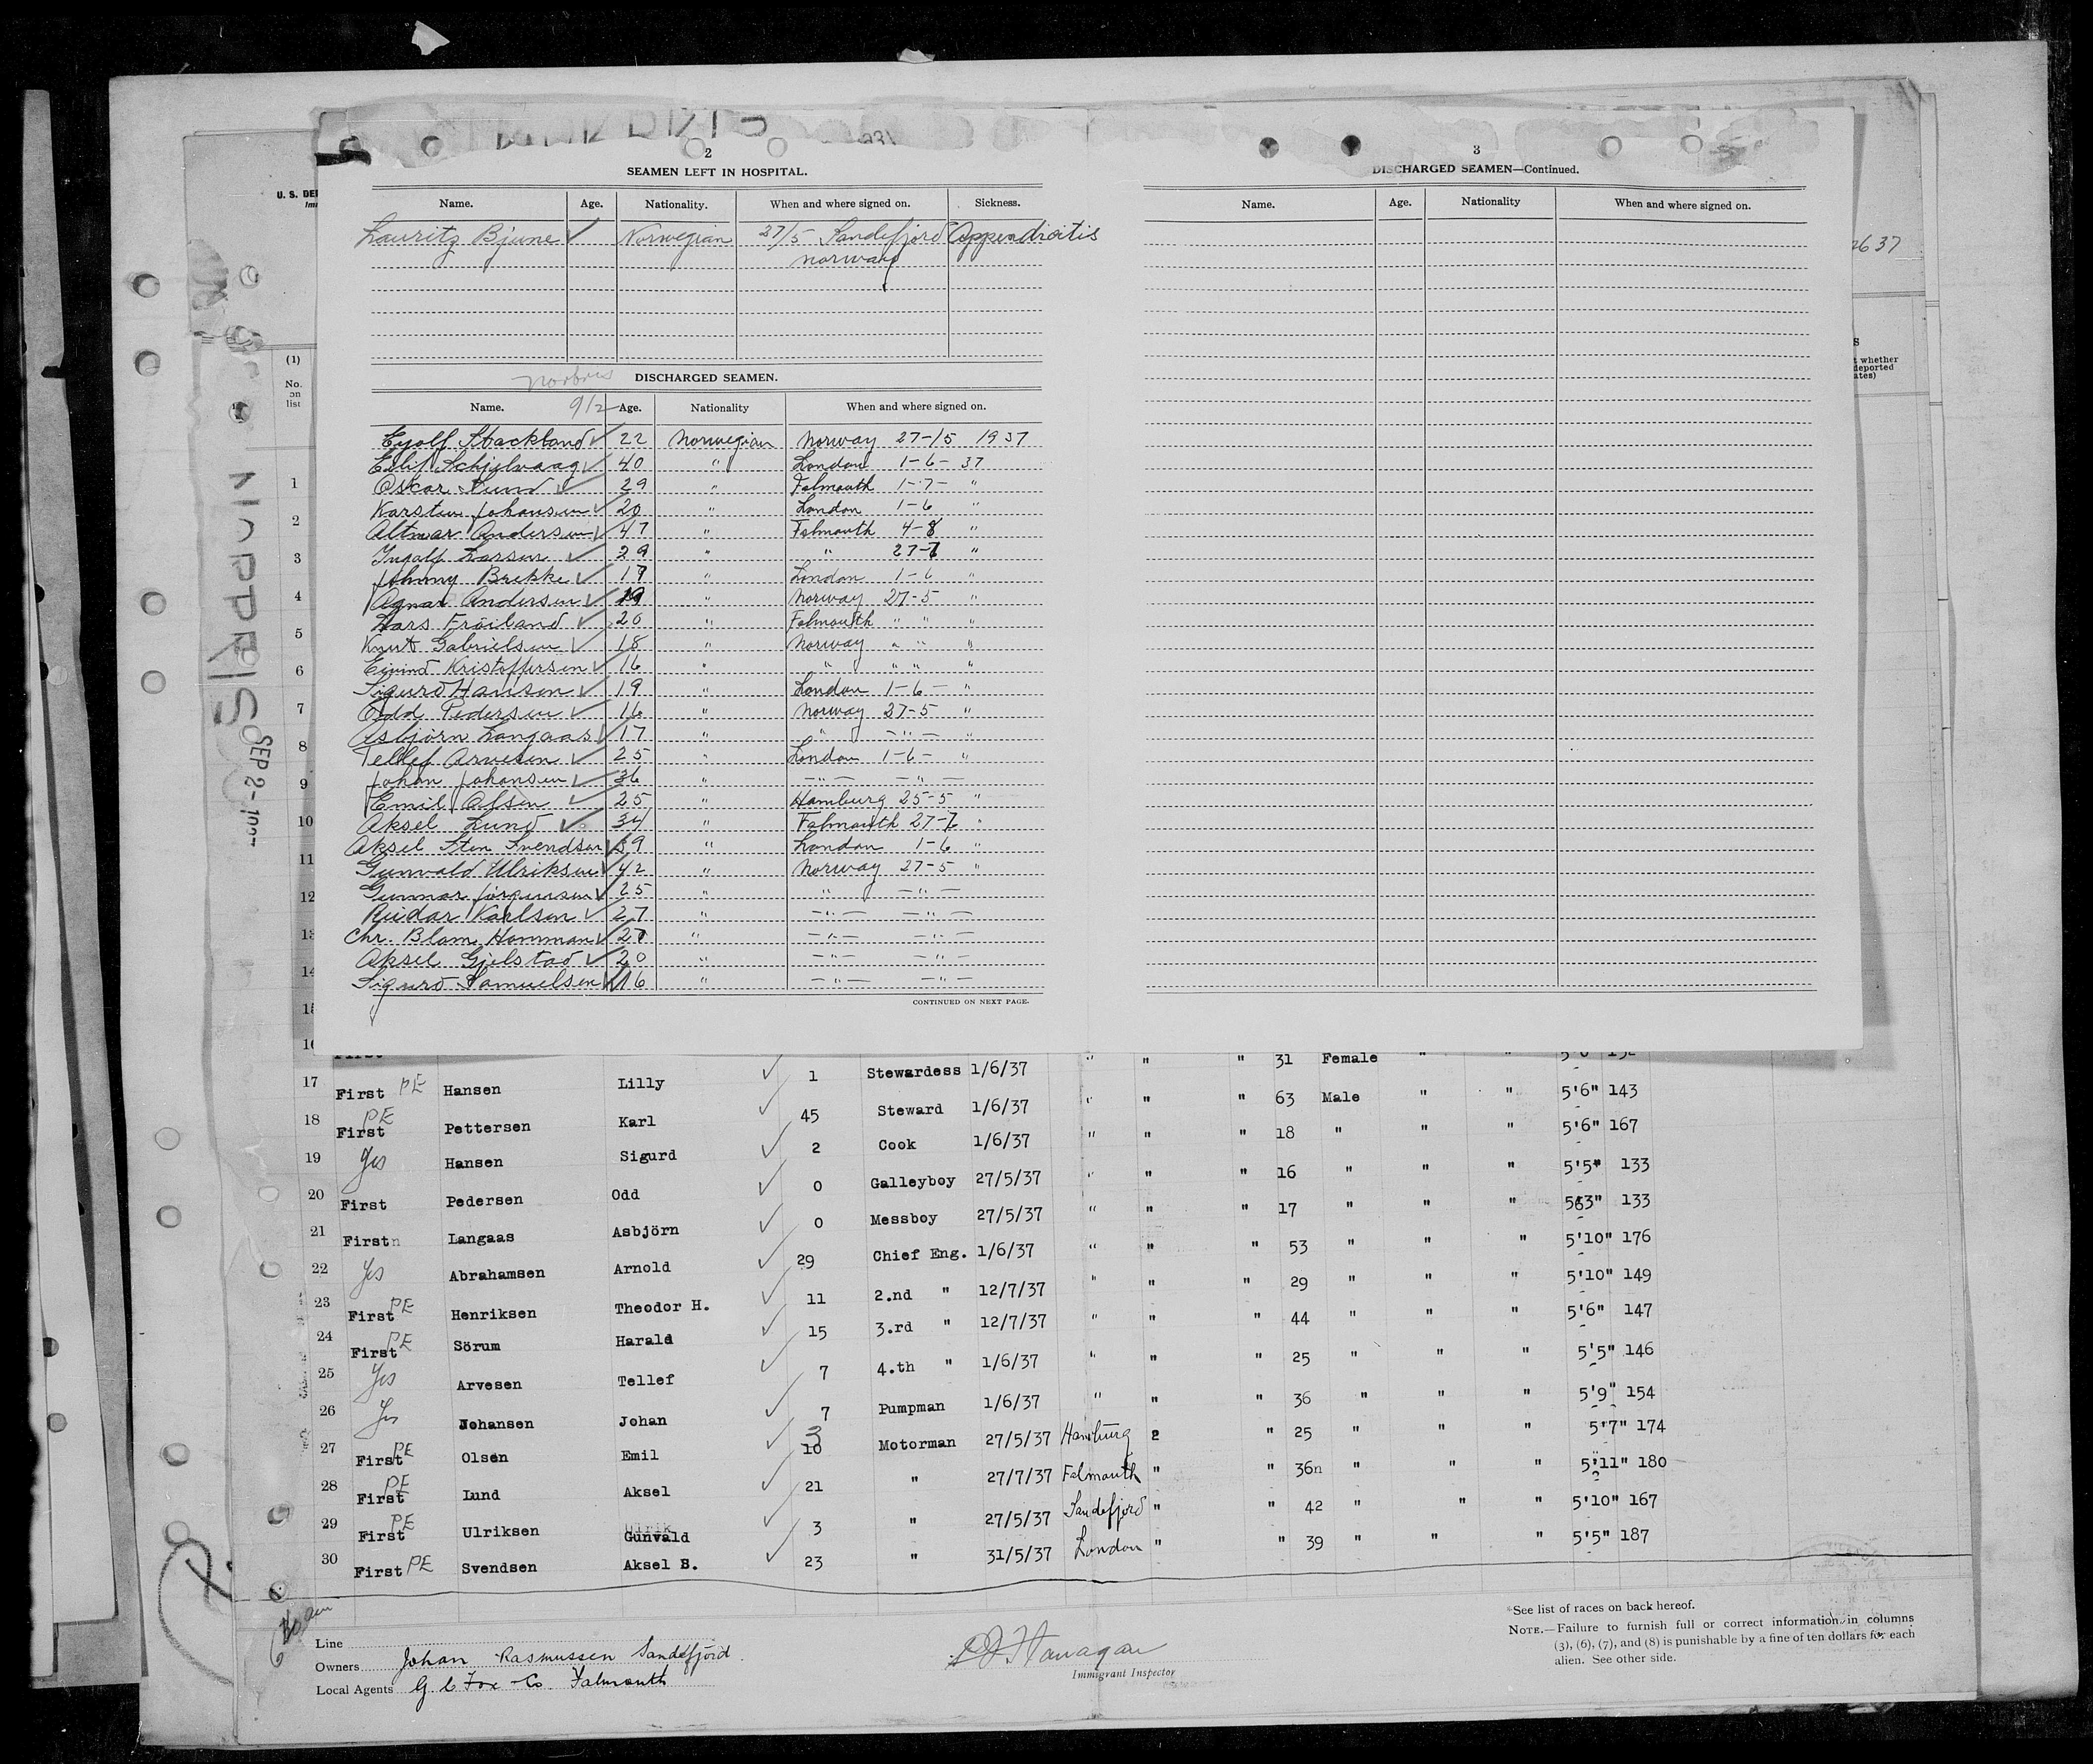 2
SEAMEN LEFT IN HOSPITAL.
Name. Age. Nationality. When and where signed on. Sickness.
Lauritz Bjune Norwegian 27/5 Sandefjord Appendicitis
Norway
DISCHARGED SEAMEN.
Name. 9/2 Age. Nationality When and where signed on.
Eyolf Stackland 22 Norwegian Norway 27-/5 1937
Eilif Schjelvaag 40 " London 1-6- 37
Oskar Lund 29 " Falmouth 1-7- "
Karsten Johansen 20 " London 1-6 "
Altmar Andersen 47 " Falmouth 4-8 "
Ingolf Larsen 29 " " 27-7 "
Johnny Brekke 17 " London 1-6 "
Agnar Andersen 19 " Norway 27-5 "
Lars Fröiland 20 " Falmouth " " "
Knut Gabrielsen 18 " Norway " " "
Eivind Kristoffersen 16 " " " " "
Sigurd Hansen 19 " London 1-6- "
Odd Pedersen 16 " Norway 27-5 "
Asbjörn Langaas 17 " " -"- "
Tellef Arvesen 25 " London 1-6- "
Johan Johansen 36 " -"- -"-
Emil Olsen 25 " Hamburg 25-5 "
Aksel Lund 34 " Falmouth 27-7 "
Aksel Sten Svendsen 39 " London 1-6 "
Gunvald Ulriksen 42 " Norway 27-5 "
Gunnar Jörgensen 25 " " -"-
Reidar Karlsen 27 " -"- -"-
Chr. Blom Hamman 27 " -"- -"-
Aksel Gjelstad 20 " -"- -"-
Sigurd Samuelsen 16 " -"- -"-
CONTINUED ON NEXT PAGE.
3
DISCHARGED SEAMEN—Continued.
Name. Age. Nationality When and where signed on.
U. S. DE
(1)
No. on list
t whether
deported
ates)
SEP 2-
1
2
3
4
5
6
7
8
9
10
11
12
13
14
15
16 31 Female " "
17 First PE Hansen Lilly 1 Stewardess 1/6/37 " " " 63 Male " " 5'6" 143
18 First PE Pettersen Karl 45 Steward 1/6/37 " " " 18 " " " 5'6" 167
19 Yes Hansen Sigurd 2 Cook 1/6/37 " " " 16 " " " 5'5" 133
20 First Pedersen Odd 0 Galleyboy 27/5/37 " " " 17 " " " 563" 133
21 Firstn Langaas Asbjörn 0 Messboy 27/5/37 " " " 53 " " " 5'10" 176
22 Yes Abrahamsen Arnold 29 Chief Eng. 1/6/37 " " " 29 " " " 5'10" 149
23 First PE Henriksen Theodor H. 11 2.nd " 12/7/37 " " " 44 " " " 5'6" 147
24 First PE Sörum Harald 15 3.rd " 12/7/37 " " " 25 " " " 5'5" 146
25 Yes Arvesen Tellef 7 4.th " 1/6/37 " " " 36 " " " 5'9" 154
26 Yes Johansen Johan 7 Pumpman 1/6/37 " " " 25 " " " 5'7" 174
27 First PE Olsen Emil 3 10 Motorman 27/5/37 Hamburg 2 " 36n " " " 5'11" 180
28 First PE Lund Aksel 21 " 27/7/37 Falmouth " " 42 " " " 5'10" 167
29 First PE Ulriksen Gunvald 3 " 27/5/37 Sandefjord " " 39 " " " 5'5" 187
30 First PE Svendsen Aksel B. 23 " 31/5/37 London "
Line
Owners Johan Rasmussen Sandefjord.
Local Agents G C Fox Co. Falmouth
Flanagan
Immigrant Inspector
*See list of races on back hereof.
NOTE.—Failure to furnish full or correct information in columns
(3), (6), (7), and (8) is punishable by a fine of ten dollars for each
alien. See other side.